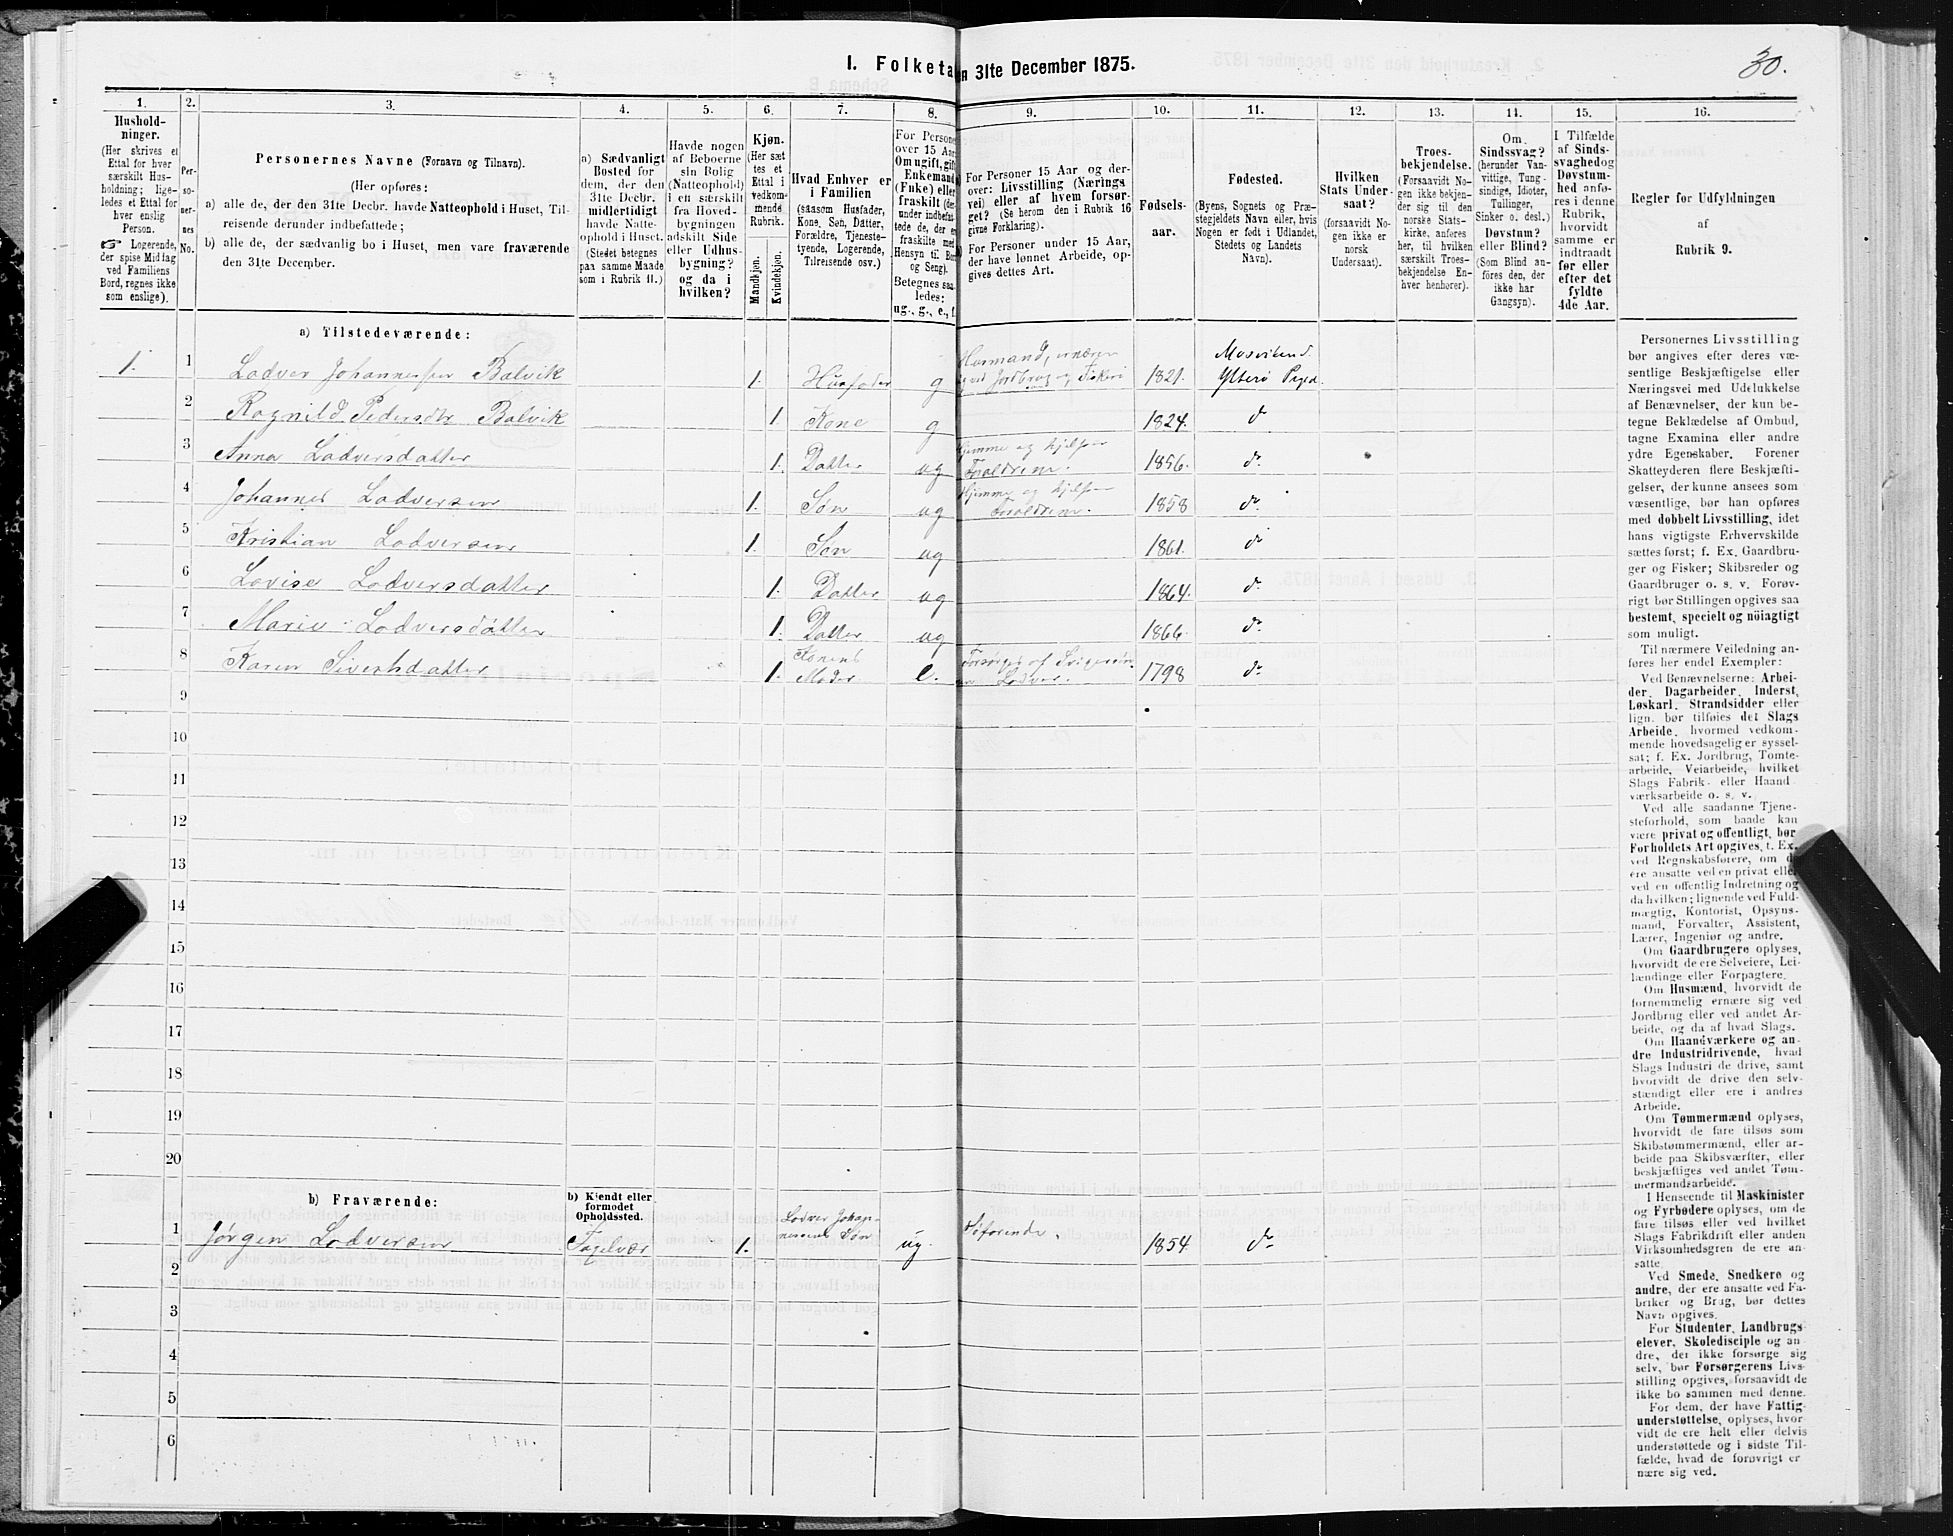 I. Folketa
n 31te December 1875.
30.
1.
2.
3.
4.
5.
6.
7.
8.
9.
10.
11.
12.
13.
14.
15.
16.
Hushold-
ninger.
(Her skrives et
Ettal for hver
særskilt Hus-
holdning; lige-
ledes et Ettal for
hver enslig
Person.
☞ Logerende,
der spise Middag
ved Familiens
Bord, regnes ikke
som enslige).
Per-
so-
ner-
nes
No.
Personernes Navne (Fornavn og Tilnavn).
(Her opføres:
a) alle de, der den 31te Decbr. havde Natteophold i Huset, Til-
reisende derunder indbefattede;
b) alle de, der sædvanlig bo i Huset, men vare fraværende
den 31te December.
a) Sædvanligt
Bosted for
dem, der den
31te Decbr.
midlertidigt
havde Natte-
ophold i Huset.
(Stedet betegnes
paa samme Maade
som i Rubrik 11.)
Havde nogen
af Beboerne
sin Bolig
(Natteophold)
i en særskilt
fra Hoved-
bygningen
adskilt Side
eller Udhus-
bygning?
og da i
hvilken?
Kjøn.
(Her sæt-
tes et
Ettal i
vedkom-
mende
Rubrik.
Mandkjøn.
Kvindekjøn.
Hvad Enhver er
i Familien
(saasom Husfader,
Kone, Søn, Datter,
Forældre, Tjeneste-
tyende, Logerende,
Tilreisende osv.)
For Persone
over 15 Aar
Om ugift, gift
Enkemand
(Enke) eller
fraskilt (der-
under indbefat-
tede de, der er
fraskilte med
Hensyn til Bord
og Seng).
Betegnes saa-
ledes:
ug., g., e., f.
a) For Personer 15 Aar og der-
over: Livsstilling (Nærings
vei) eller af hvem forsør-
get? (Se herom den i Rubrik 16
givne Forklaring).
b) For Personer under 15 Aar,
der have lønnet Arbeide, op-
gives dettes Art.
Fødsels-
aar.
Fødested.
(Byens, Sognets og Præ-
stegjeldets Navn eller, hvis
Nogen er født i Udlandet,
Stedets og Landets
Navn).
Hvilken
Stats Under-
saat?
(forsaavidt No-
gen ikke er
norsk
Undersaat).
Troes-
bekjendelse.
(Forsaavidt No-
gen ikke bekjen-
der sig til den
norske Stats-
kirke, anføres
her, til hvilken
særskilt Troes-
bekjendelse En-
hver henhører).
Om
Sindssvag?
(herunder Van-
vittige, Tung-
sindige, Idioter,
Tullinger,
Sinker o. desl.)
Døvstum?
eller Blind?
(Som Blind an-
føres den, der
ikke har
Gangsyn).
I Tilfælde
af Sinds-
svaghed og
Døvstum-
hed anfø-
res i denne
Rubrik,
hvorvidt
samme er
indtraadt
før eller
efter det
fyldte
4de Aar.
Regler for Udfyldningen
af
Rubrik 9.
a) Tilstedeværende:
1. 1 Lodver Johannessen Balvik 1. Husfader g Husmand, ernærer sig ved Jordbrug og Fiskeri 1821. Mosvikens Ytterø Pgjd.
2 Ragnild Pedersdtr Balvik 1. Kone g 1824. do
3 Anna Lodversdatter 1. Datter ug Hjemme og hjelper Foraldrene. 1856. do
4 Johannes Lodversen 1. Søn ug Hjemme og hjelper Foraldrene. 1858 do
5 Kristian Lodversen 1. Søn ug 1861. do
6 Lovise Lodversdatter 1. Datter ug 1864. do
7 Marie Lodversdatter 1. Datter ug 1866. do
8 Karen Sivertsdatter 1. Konens Moder e. Forsørges af Svigersønnen Lodver. 1798 do
9
10
11
12
13
14
15
16
17
18
19
20
b) Fraværende:
b) Kjendt eller
formodet
Opholdssted.
1 Jørgen Lodversen Fagelvær 1. Lodver Johannesens Søn ug. Søfarende. 1854 do
2
3
4
5
6
Personernes Livsstilling
bør angives efter deres væ-
sentlige Beskjæftigelse eller
Næringsvei med Udelukkelse
af Benævnelser, der kun be-
tegne Beklædelse af Ombud,
tagne Examina eller andre
ydre Egenskaber. Forener
Skatteyderen flere Beskjæfti-
gelser, der kunne ansees som
væsentlige, bør han opføres
med dobbelt Livsstilling, idet
hans vigtigste Erhvervskilde
sættes først; f. Ex. Gaardbru-
ger og Fisker; Skibsreder og
Gaardbruger o. s. v. Forøv-
rigt bør Stillingen opgives saa
bestemt, specielt og nöiagtigt
som muligt.
Til nærmere Veiledning an-
føres her endel Exempler:
Ved Benævnelserne: Arbei-
der, Dagarbeider, Inderst,
Løskarl, Strandsidder eller
lign. bør tilføies det Slags
Arbeide, hvormed vedkom-
mende hovedsagelig er syssel-
sat; f. Ex. Jordbrug, Tomte-
arbeide, Veiarbeide, hvilket
Slags Fabrik- eller Haand
værksarbeide o. s. v.
Ved alle saadanne Tjene-
steforhold, som baade kan
være privat og offentligt, bør
Forholdets Art opgives, t. Ex.
ved Regnskabsførere, om de
ere ansatte ved en privat eller
ved en offentlig Indretning og
da hvilken; lignende ved Fuld-
mægtig, Kontorist, Opsyns-
mand, Forvalter, Assistent,
Lærer, Ingeniør og andre.
Om Gaardbrugere oplyses,
hvorvidt de ere Selveiere, Lei-
lændinge eller Forpagtere.
Om Husmænd, hvorvidt de
fornemmelig ernære sig ved
Jordbrug eller ved andet Ar-
beide, og da af hvad Slags.
Om Haandværkere og an-
dre Industridrivende, hvad
Slags Industri de drive, samt
hvorvidt de drive den selv-
stændigt eller ere i andres
Arbeide.
Om Tømmermænd oplyses,
hvorvidt de fare tilsøs som
Skibstømmermænd, eller ar-
beide paa Skibsværfter, eller
beskjæftiges ved andet Tøm-
mermandsarbeide.
I Henseende til Maskinister
og Fyrbødere oplyses, om de
fare tilsøs eller ved hvilket
Slags Fabrikdrift eller anden
Virksomhedsgren de ere an-
satte.
Ved Smede, Snedkere og
andre, der ere ansatte ved Fa-
briker og Brug, bør dettes
Navn opgives.
For Studenter, Landbrugs
elever, Skoledisciple og an-
dre, der ikke forsørge sig
selv, bør Forsørgerens Livs-
stilling opgives, forsaavidt de
ikke bo sammen med denne.
For dem, der have Fattig-
understøttelse, oplyses, hvor-
vidt de ere helt eller delvis
understøttede og i sidste Til-
fælde, hvad de forøvrigt er-
nære sig ved.